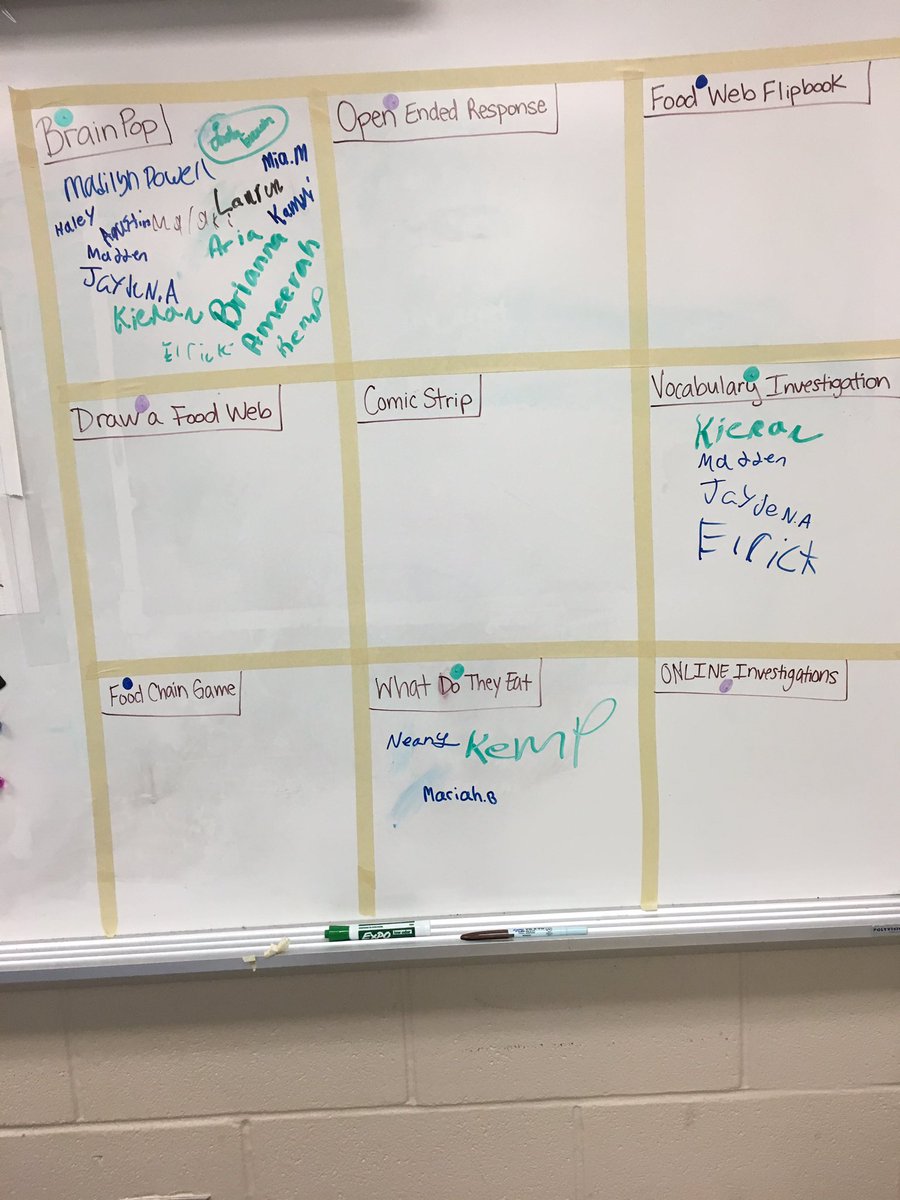 BrainPop
Mia.M
Madilyn Powell
Lauryn
Haley
Malaki
Kamri
Aria
Madden
Brianna
JayJeN.A
Ameerah
Kieran
Kemp
Elrick
Open Ended Response
Food Web Flipbook
Draw a Food Web
Comic Strip
Vocabulary Investigation
Kieran
Madden
JayJeN.A
Elrick
Food Chain Game
What Do They Eat
Neany Kemp
Mariah.B
ONLINE Investigations
EXPO